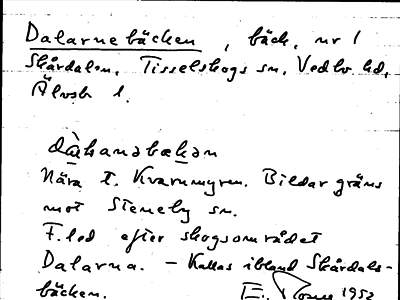 Dalarnebäcken, bäck, nr 1
Skårdalen. Tisselskogs sn. Vedbo hd,
Älvsb l.
Nära t. Kvarnmyren. Bildar gräns
mot Steneby sn.
F. led efter skogsområdet
Dalarna. – Kallas ibland Skårdals-
bäcken. 1952